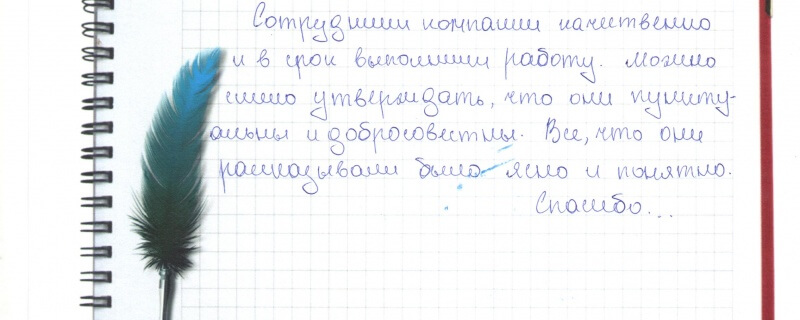 Сотрудники компании качественно
и в срок выполнили работу. Можно
смело утверждать, что они пункту-
альны и добросовестны. Все, что они
рассказывали было ясно и понятно.
Спасибо...